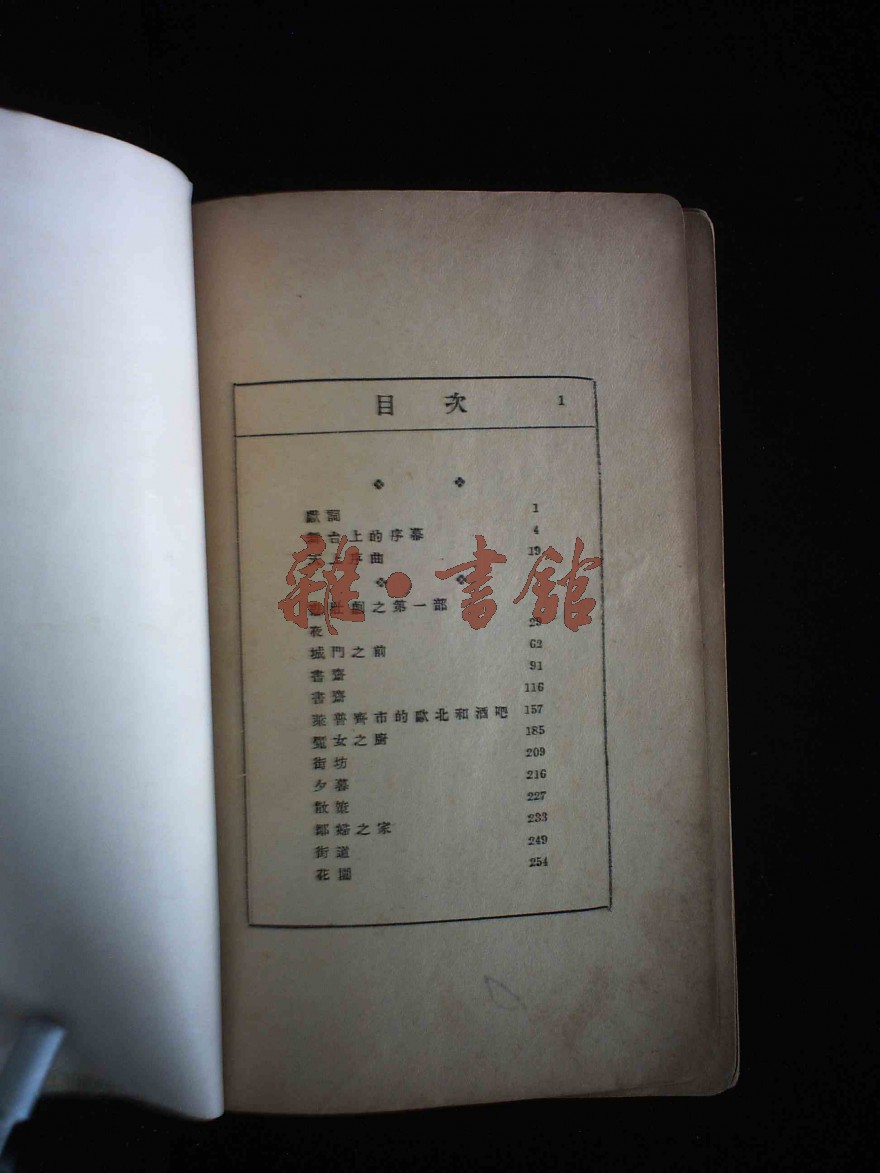 目次 1
獻詞 1
舞台上的序幕 4
天上序曲 19
悲壯劇之第一部
夜 29
城門之前 62
書齋 91
書齋 116
萊普齊市的歐北和酒吧 157
魔女之廚 185
街坊 209
夕暮 216
散策 227
鄰婦之家 233
街道 249
花園 254
雜·書館